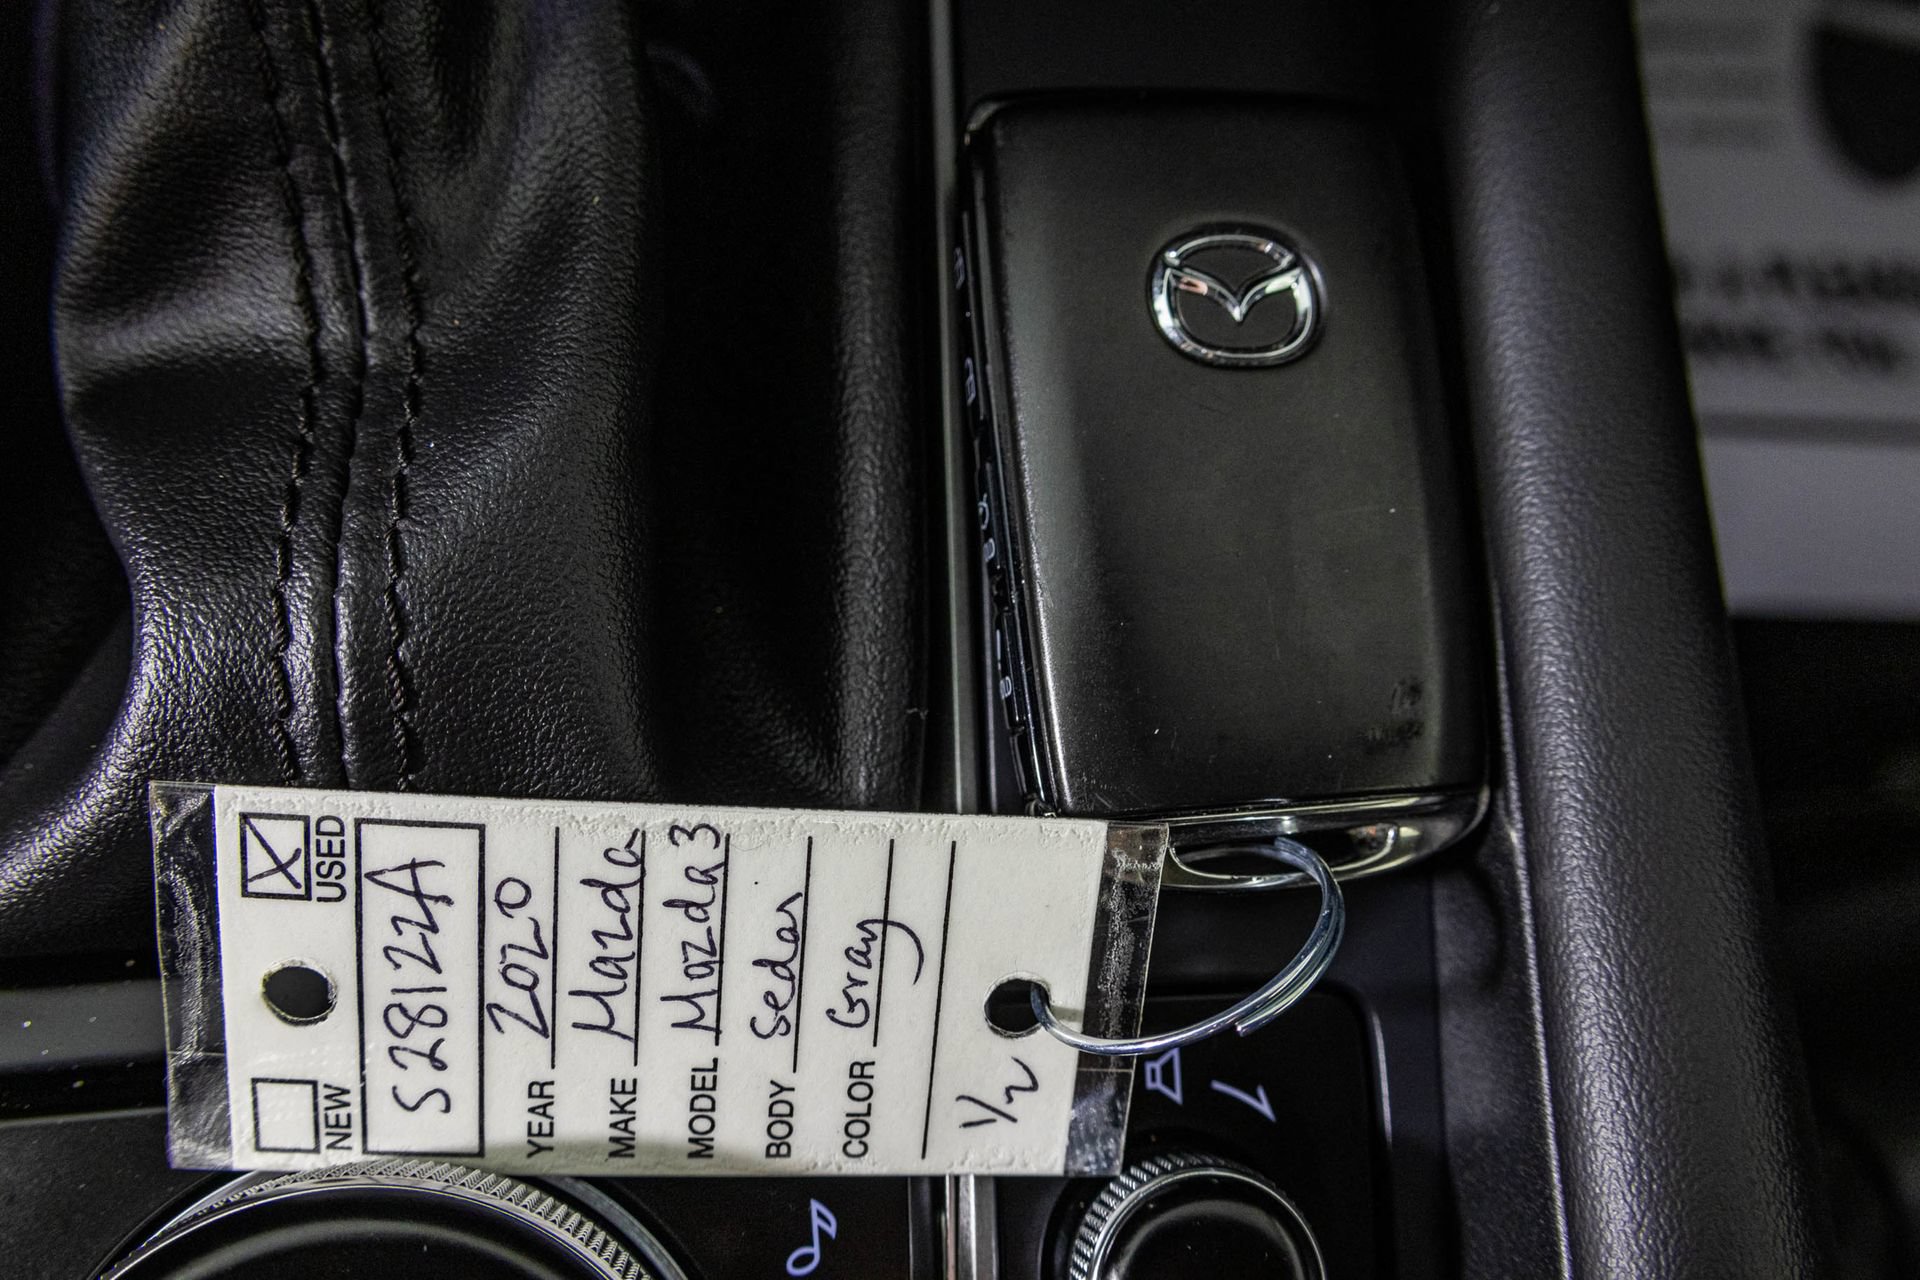 NEW USED
S28122A
YEAR 2020
MAKE Mazda
MODEL Mazda 3
BODY Sedan
COLOR Gray
1/2